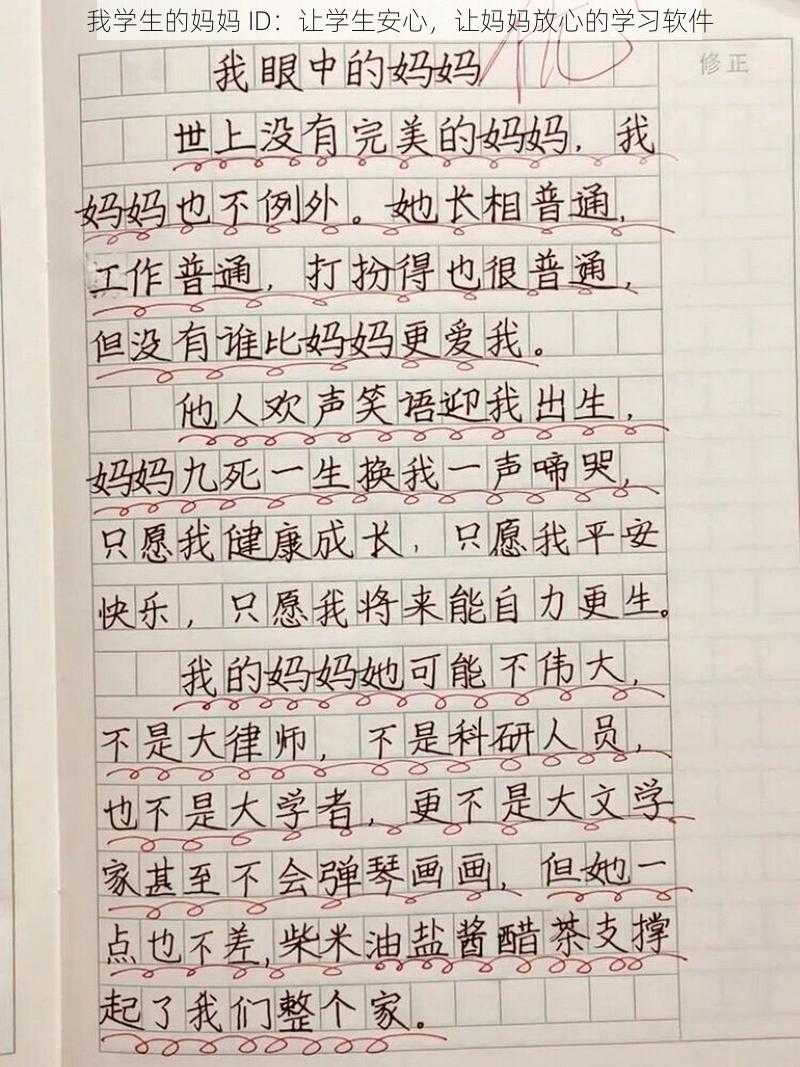 我学生的妈妈 ID：让学生安心，让妈妈放心的学习软件
修正
我眼中的妈妈
世上没有完美的妈妈，我
妈妈也不例外。她长相普通，
工作普通，打扮得也很普通，
但没有谁比妈妈更爱我。
他人欢声笑语迎我出生，
妈妈九死一生换我一声啼哭，
只愿我健康成长，只愿我平安
快乐，只愿我将来能自力更生。
我的妈妈她可能不伟大，
不是大律师，不是科研人员，
也不是大学者，更不是大文学
家甚至不会弹琴画画，但她一
点也不差,柴米油盐酱醋茶支撑
起了我们整个家。